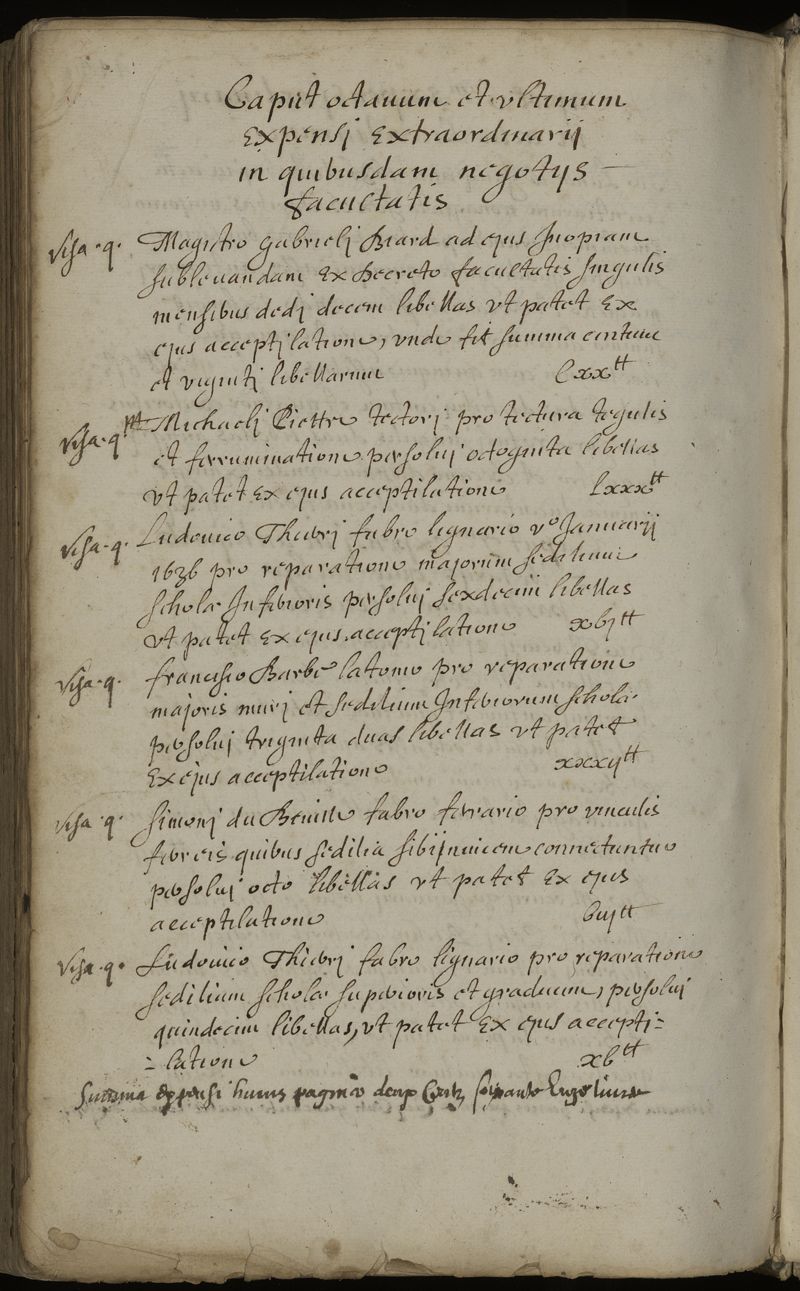 Caput octauum et vltimum
Expensi Extraordinarij
in quibusdam negotijs
facultatis
Visa .q. Magistro Gabrieli Biard ad ejus Inopiam
subleuandam Ex Decreto facultatis singulis
mensibus dedi decem libellas vt patet Ex
ejus acceptilatione, vnde fit summa centum
et viginti libellarum lxx tt
Visa .q. Michaeli Piettre tectori pro tectura tegulis
et ferruminatione persolui octoginta libellas
vt patet Ex ejus acceptilatione lxxx tt
Visa .q. Ludouico Thieri fabro lignario vº Januarij
1636 pro reparatione majorum sedilium
scholæ Inferioris persolui sexdecim libellas
vt patet Ex ejus acceptilatione xbj tt
Visa .q. francisco Barbé latomo pro reparatione
majoris muri et sedilium Inferiorum scholæ
persolui triginta duas libellas vt patet
Ex ejus acceptilatione xxxij tt
Visa .q. Simoni du fabro ferrario pro vinculis
ferreis quibus sedilia sibi jnuicem connectuntur
persolui octo libellas vt patet Ex ejus
acceptilatione biij tt
Visa .q. Ludouico Thieri fabro lignario pro reparatione
sedilium scholæ superioris et graduum, persolui
quindecim libellas, vt patet Ex ejus accepti=
=latione xb tt
Summa expensi huius paginæ